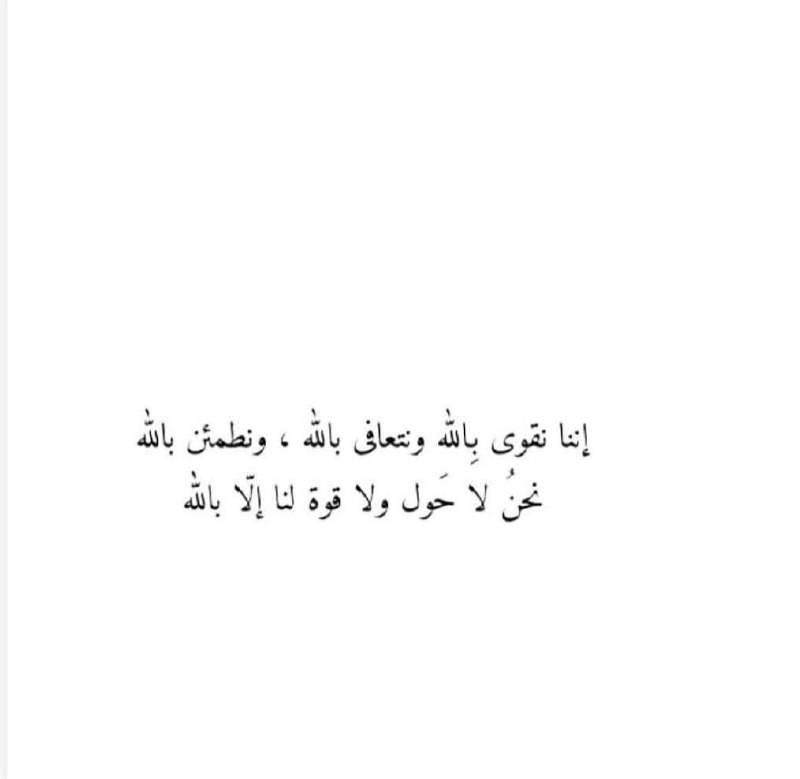 إننا نقوى بِالله ونتعافى بالله ، ونطمئن بالله
نحنُ لا حَول ولا قوة لنا إلّا بالله